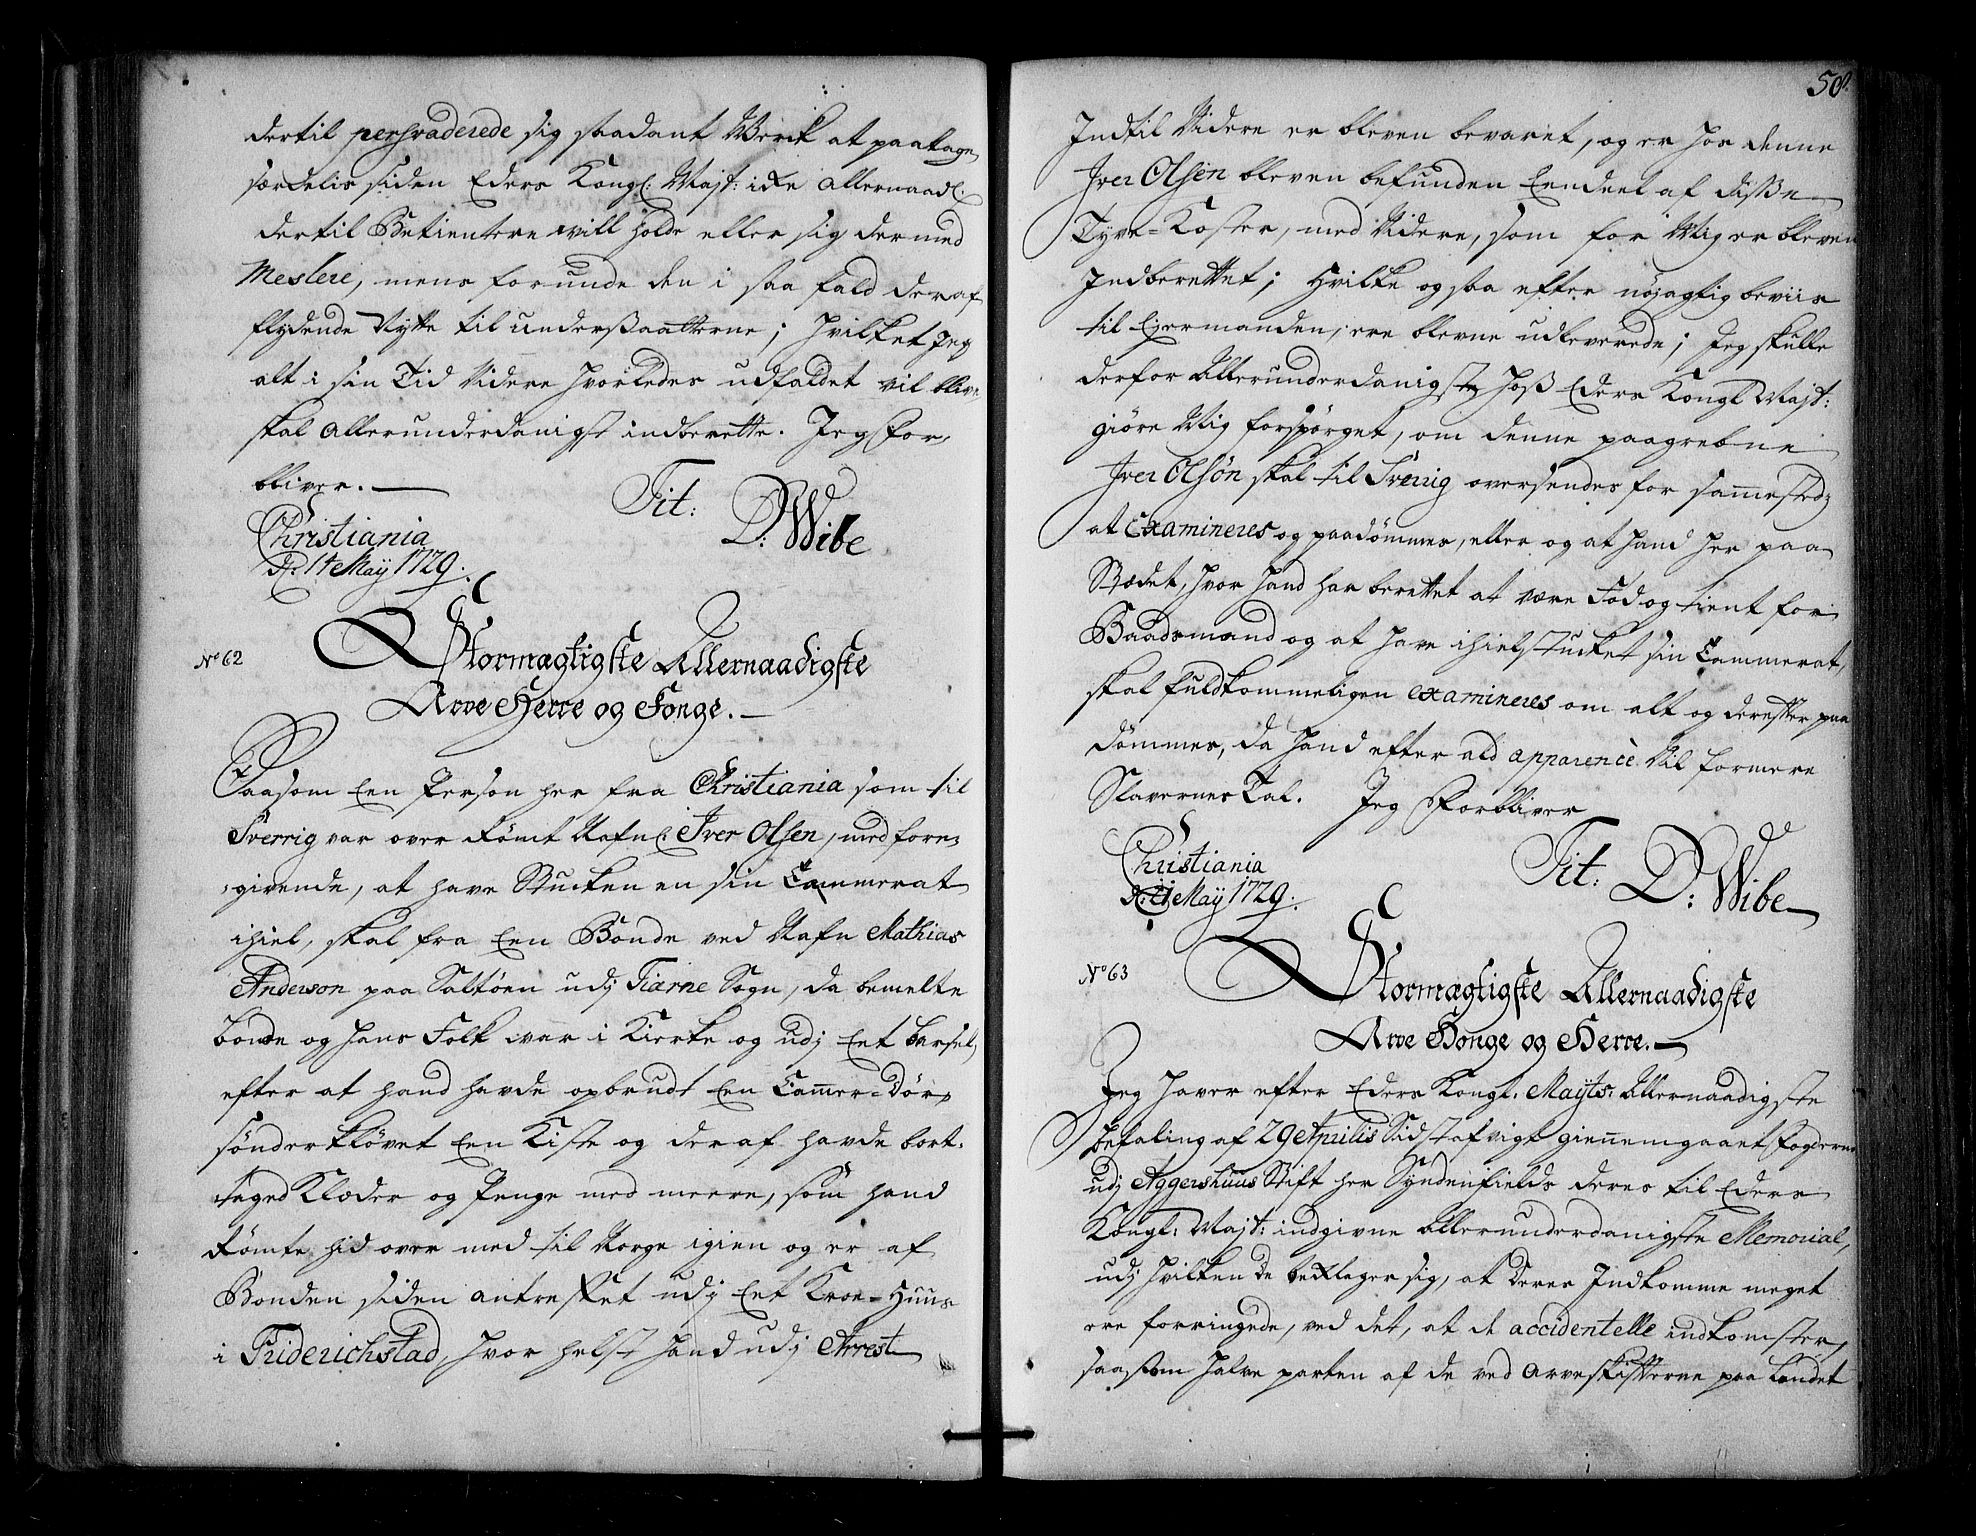 dertil persvaderede sig saadant Werck at paatage,
særdelis siden Eders Kongl: Majt: icke allernaadl:
dertil Betientere will holde eller sig dermed
Meslere, mens forunde den i saa fald deraf
flydende Nytte til undersaatterne; hvilket Jeg
alt i sin Tid Videre hvorledes udfaldet vil blive,
skal allerunderdanigst indberette. Jeg for,
bliver.
Tit: D: Wibe
Christiania
d: 14 Maÿ 1729.
No 62
Stormægtigste Allernaadigste
Arve Herre og Konge.
Saasom Een Person her fra Christiania som til
Sverrig var over Römt Nafnl. Iver Olsen, med fore-
givende, at have Stucken en sin Cammerat
ihiel, skal fra Een Bonde ved Nafn Mathias
Anderson paa Saltöen udj Tiærne Sogn, da bemelte
bonde og hans Folk war i Kierke og udj Eet barsel,
efter at hand havde opbrudt Een Cammer-Dör,
sönderklövet Een Kiste og deraf havde bort-
taged Klæder og Penge med meere, som hand
Römte hid over med til Norge igien og er af
Bonden siden antreffet udj Eet Kroe-Huus
i Friderichstad, hvor helst hand udj Arrest
50.
Indtil Videre er bleven bevaret, og er hos denne
Iver Olsen bleven befunden Eendeel af disse
Tyve-Koster, med Videre, som for Mig er bleven
Indberettet; Hvilke ogsaa efter nöjagtig beviis
til Ejermanden, ere blevne udleverede; Jeg skulle
derfor Allerunderdanigst hoss Eders Kongl Majt:
giöre Mig forspörget, om denne paagrebne
Iver Olsön skal til Sverrig oversendes for sammested
at Examineres og paadömmes, eller og at hand her paa
Stædet, hvor hand har berettet at være Föd og tient for
Baadsmand og at have ihielstucket sin Cammerat,
skal fuldkommeligen examineres om alt og derefter paa
dömmes, da hand efter ald apparence Vil formere
Slavernes Tal. Jeg Forbliver
Tit: D: Wibe
Christiania
d: 21 Maÿ 1729.
No 63
Stormægtigste Allernaadigste
Arve Konge og Herre.
Jeg haver efter Eders Kongl. Maÿts. Allernaadigste
befaling af 29 Aprilis Sidst afvigt giennemgaaet Fogderne
udj Aggershuus Stift her Syndenfields deres til Eders
Kongl. Majt: indgivne Allerunderdanigste Memorial,
udj hvilken De beklager sig, at deres Indkomme meget
ere forringede, ved det, at de accidentelle indkomster,
saasom halve parten af de ved arveskifterne paa Landet